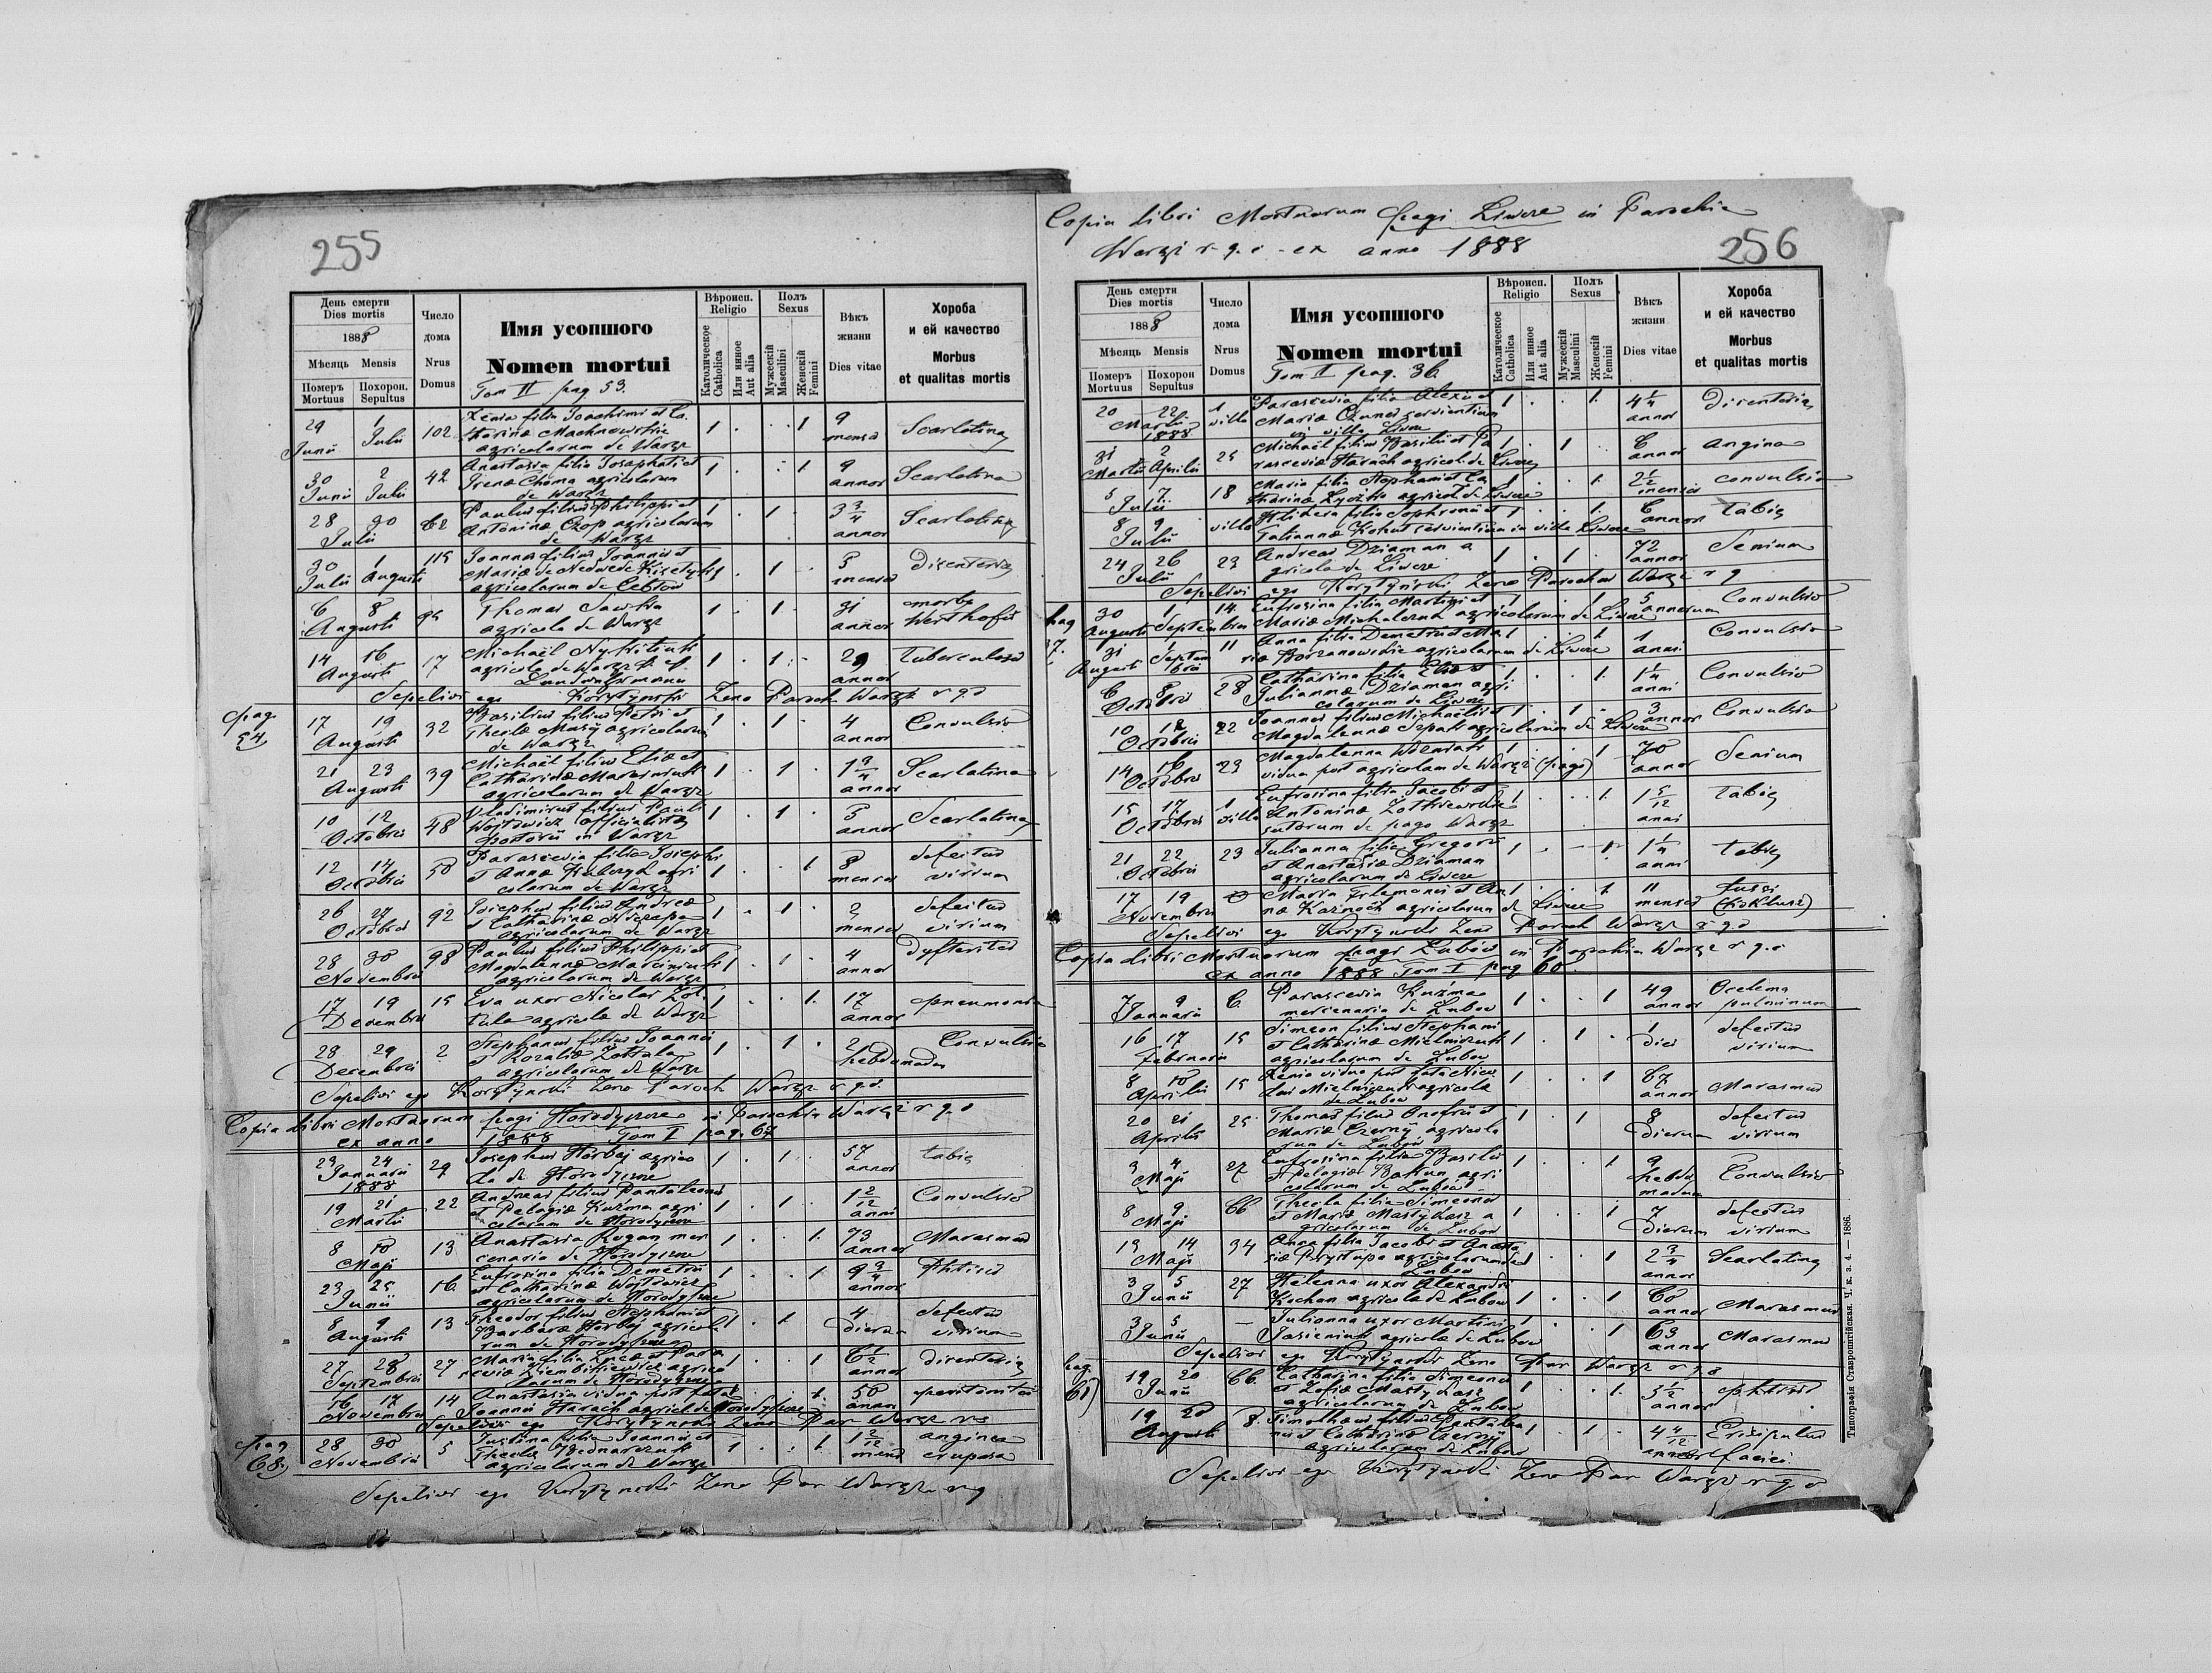 255
День смерти
Dies mortis
1888
Мѣсяць Mensis
Померъ
Mortuus
Похорон.
Sepultus
Число
дома
Nrus
Domus
Имя усопшого
Nomen mortui
Tom II pag 53.
Вѣроисп.
Religio
Католическое
Catholica
Или инное
Aut alia
Полъ
Sexus
Мужескій
Masculini
Женскій
Femini
Вѣкъ
жизни
Dies vitae
Хороба
и ей качество
Morbus
et qualitas mortis
29 1 102 Xenia filia Joachimi et Ca- 1 . . 1 9 Scarlatina
Junii Julii tharinæ Machnowskie mensis
agricolarum de Waręż
30 2 42 Anastasia filia Josaphati et 1 . . 1 9 Scarlatina
Junii Julii Irenæ Choma agricolarum annor
de Waręż
28 30 62 Paulus filius Philippi et 1 . 1 . 3 3/4 Scarlatina
Julii Antoninæ Czop agricolarum annor
de Waręż
30 1 115 Joannes filius Joannis et 1 . 1 . 3 Disenteria
Julii Augusti Mariæ de mensis
agricolarum de
6 8 Thomas Sawka 1 . 1 . 31 morbo
Augusti agricola de Waręż annor Werthofii
14 16 17 Michaël 1 . 1 . 29 Tuberculosa
Augusti agricola de Waręż annor
Sepelivi ego Korytyński Zeno Paroch Waręż r. g. c
pag.
54.
17 19 32 Basilius filius Petri et 1 . 1 . 4 Convulsio
Augusti Theclæ agricolarum annor
de Waręż
21 23 39 Michaël filius Eliæ et 1 . 1 . 1 3/4 Scarlatina
Augusti Catharinæ annor
agricolarum de Waręż
10 12 48 Vladimirus filius Pauli 1 . 1 . 3 Scarlatina
Octobris Wojtowicz officialista annor
in Waręż
12 14 50 Parascevia filia Josephi 1 . . 1 8 defectus
Octobris et Annæ agri mensis virium
colarum de Waręż
26 27 92 Josephus filius Andreæ 1 . 1 . 2 defectus
Octobris et Catharinæ mensis virium
agricolarum de Waręż
28 30 98 Paulus filius Philippi et 1 . 1 . 4 Dyfteritis
Novembris Magdalenæ Marciniuk annor
agricolarum de Waręż
17 19 15 Eva uxor Nicolai Zol- 1 . . 1. 17 pneumonia
Decembris tula agricolæ de Waręż annor
28 29 2 Stephanus filius Joannis 1 . 1 . 2 Convulsio
Decembris et Rozaliæ hebdomadas
agricolarum de Waręż
Sepelivi ego Korytyński Zeno Paroch Waręż r. g. c.
Copia Libri Mortuorum pagi Horodyszcze in Parochia Waręż r. g. c
ex anno 1888 Tom I pag. 67
23 24 29 Josephus Horbaj agrico 1 . 1 . 57 tabis
Januarii la de Horodyszcze annor
1888
19 21 22 Andreas filius Pantaleonis 1 . 1 . 1 2/12 Convulsio
Martii et Pelagiæ Kuźma agri anni
colarum de Horodyszcze
8 10 13 Anastasia Rogan mer 1 . . 1. 73 Marasmus
Maji cenaria de Horodyszcze annor
23 25 16 Eufrosina filia Demetrii 1 . . 1 9 3/4 Phtisis
Junii et Catharinæ Wojtowicz annor
agricolarum de Horodyszcze
8 9 13 Theodor filius Stephani et 1 . 1 4 defectus
Augusti Barbaræ Horbaj agricola dierum virium
rum de Horodyszcze
27 28 27 Maria filia Lucæ et Para 1 . . 1 6 1/2 disenteria
Septembris sceviæ agrico annor
larum de Horodyszcze
16 17 14 Anastasia vidua post fata . . 1. 50 peritonitis
Novembris Joannis Harach agricol. de Horodyszcze annor
Sepelivi ego Korytyński Zeno Par Waręż r g
pag
68.
28 30 5 Justina filia Joannis et 1 . . 1. 1 2/12 angina
Novembris Theclæ Bednarczuk mens cruposa
agricolarum de Waręż
Sepelivi ego Korytyński Zeno Par Waręż r g
Copia Libri Mortuorum pagi Liwcze in Parochia
Waręż r. g. c - ex anno 1888
256
День смерти
Dies mortis
1888
Мѣсяць Mensis
Померъ
Mortuus
Похорон
Sepultus
Число
дома
Nrus
Domus
Имя усопшого
Nomen mortui
Tom II pag. 36.
Вѣроисп.
Religio
Католическое
Catholica
Или инное
Aut alia
Полъ
Sexus
Мужескій
Masculini
Женскій
Femini
Вѣкъ
жизни
Dies vitae
Хороба
и ей качество
Morbus
et qualitas mortis
20 22 1 Parascevia filia Alexii et 1 . . 1. 4 1/4 Disenteria
Martii villa Mariæ servientium annor
1888 in villa Liwcze
31 2 25 Michaël filius Basilii et Pa 1 . 1 . 6 angina
Martii Aprilii rasceviæ Harach agricol. de Liwcze annor
5 7 18 Maria filia Stephani et Ca 1 . . 1. 2 1/2 convulsio
Julii tharinæ agricol. de Liwcze mensis
8 9 villa filia Sophronii et 1 . . 1. 6 tabis
Julii Tatiannæ Kohut servientium in villa Liwcze annor
24 26 23 Andreas Dziaman a 1 . 1 . 72 Senium
Julii gricola de Liwcze annor
Sepelivi ego Korytyński Zeno Parochus Waręż r g
pag
37.
30 1 14. Eufrosina filia Martini et 1 . . 1 5 Convulsio
Augusti Septembris Mariæ Michalczuk agricolarum de Liwcze annorum
31 1 11 Anna filia Demetrii et Ma 1 . . 1. 1 Convulsio
Augusti Septem riæ agricolarum de Liwcze anni
bris
6 8 28 Catharina filia Eliæ et 1 . . 1. 1 1/4 Convulsio
Octobris Juliannæ Dziaman agri anni
colarum de Liwcze
10 12 22 Joannes filius Michaëlis et 1 . 1 . 3 Convulsio
Octobris Magdalennæ agricolarum de Liwcze annor
14 16 23 Magdalenna Woźniak 1 . . 1 70 Senium
Octobris vidua post agricolam de Waręż (pago) annor
15 17 1 Eufrosina filia Jacobi et 1 . . 1. 1 5/12 tabis
Octobris villa Antoninæ anni
sutorum de pago Waręż
21 22 23 Julianna filia Gregorii 1 . . 1. 1 1/4 tabis
Octobris et Anastasiæ Dziaman anni
agricolarum de Liwcze
17 19 Maria et An 1 . . 1. 11 tussi
Novembris næ agricolarum de Liwcze mensis (koklusz)
Sepelivi ego Korytyński Zeno Paroch Waręż r. g. c
Copia Libri Mortuorum pagi Lubów in Parochia Waręż r. g. c
ex anno 1888 Tom I pag 60.
7 9 6. Parascevia Kuźma 1 . . 1 49 Oedema
Januarii mercenaria de Lubow annor pulmonum
16 17 15 Simeon filius Stephani 1 . 1 . 1 defectus
Februarii et Catharinæ Mielniczuk dies virium
agricolarum de Lubow
8 10 15 Xenia vidua post fata Nico 1 . . 1 67 Marasmus
Aprilii lai Mielniczuk agricolæ annor
de Lubow
20 21 25 Thomas filius Onofrii et 1 . 1 8 defectus
Aprilii Mariæ Czernij agricola dierum virium
rum de Lubow
3 4 27 Eufrosina filia Basilii 1 . . 1. 9 Convulsio
Maji et Pelagiæ agri hebdo
colarum de Lubow madum
8 9. 66 Thecla filia Simeonis 1 . . 1 7 defectus
Maji et Mariæ Mastykasz a dierum virium
gricolarum de Lubow
13 14 34 Anna filia Jacobi et Anasta 1 . . 1 2 3/4 Scarlatina
Maji siæ Prystupa agricolarum de annor
Lubow
3 5 27 Helenna uxor Alexandri 1 . . 1 60 Marasmus
Junii Kochan agricolæ de Lubow annor
3 5 — Julianna uxor Martini 1 . . 1 63 Marasmus
Junii agricolæ de Lubow annor
Sepelivi ego Korytyński Zeno Par Waręż r g c
pag.
61)
19 20 66. Catharina filia Simeonis 1 . . 1. 3 1/2 phtisis
Junii et Zofiæ Mastykasz annor
agricolarum de Lubow
19 20 8. Timotheus filius Pantaleo 1 . 1 . 4 4/12
Augusti nis et Catharinæ Czernij annor faciei
agricolarum de Lubow
Sepelivi ego Korytyński Zeno Par Waręż r g. c
Типографія Ставропигійская. Ч. к. з. 4. — 1886.